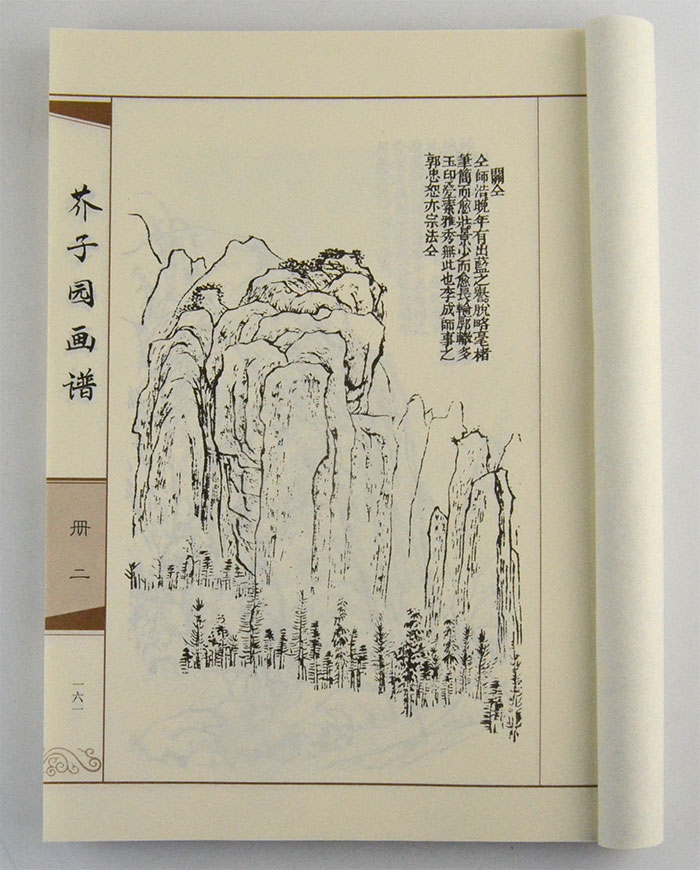 關仝
仝師浩晚年有出藍之譽脫略毫楮
筆簡而愈壯景少而愈長輪廓多
玉印素雅秀無此也李成師事之
郭忠恕亦宗法仝
芥子园画谱
册二
一六一